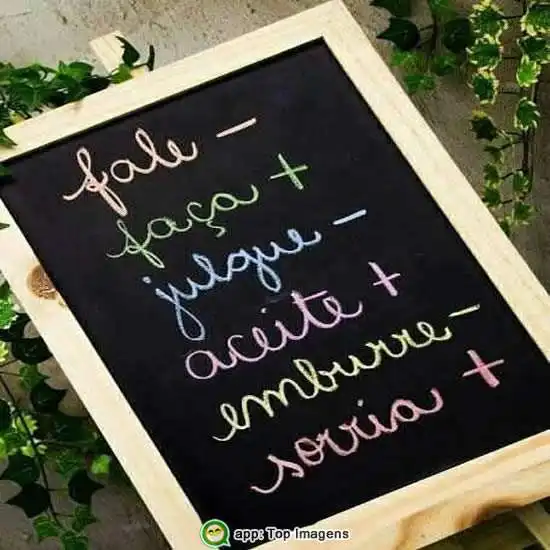 fale -
faça +
julgue -
aceite +
emburre -
sorria +
app: Top Imagens